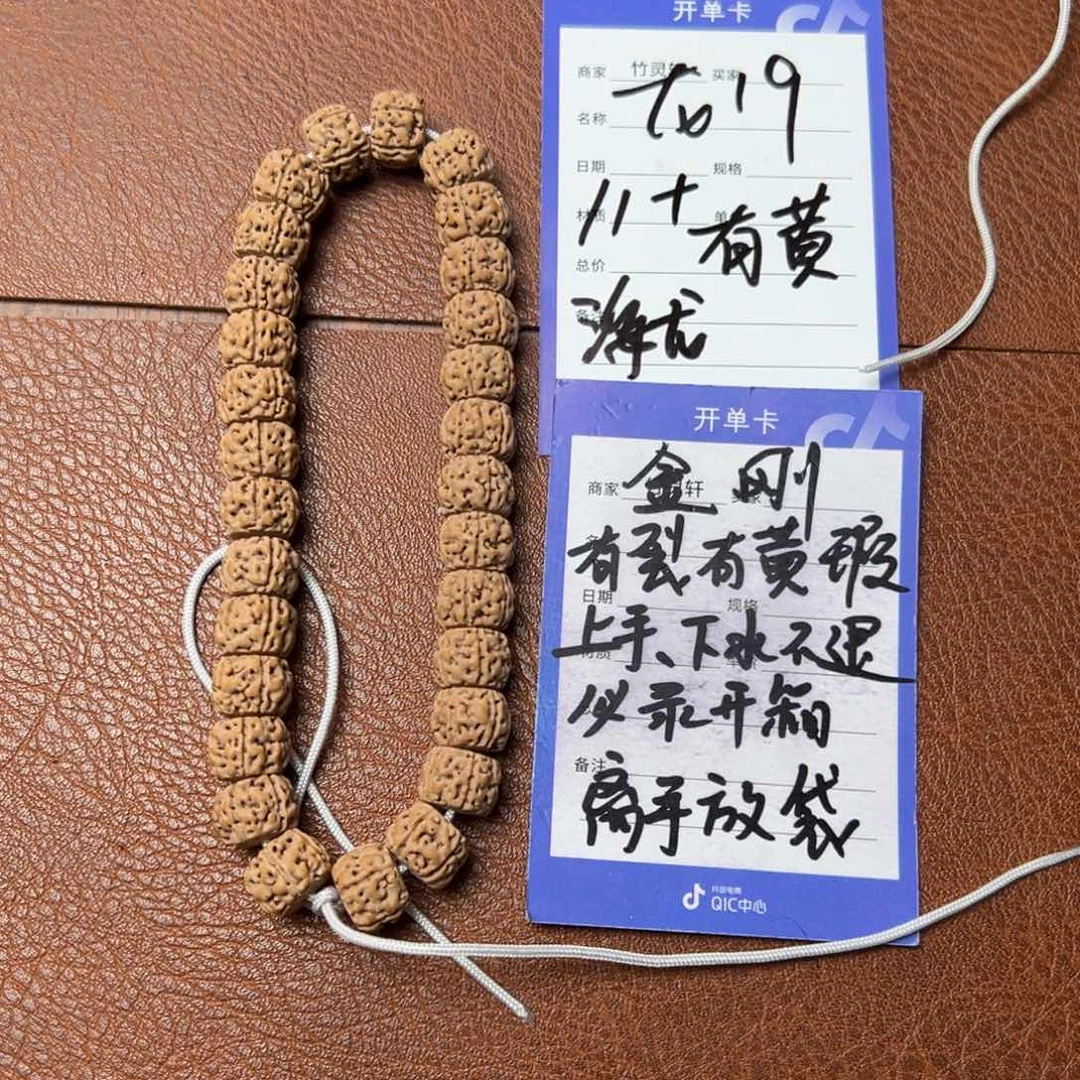 开单卡
商家 竹灵 买家
名称
19
日期 规格
11+ 有黄
总价
海龙
开单卡
金刚
商家 轩
有裂有黄瑕
日期 规格
上手、下水不退
必录开箱
备注
离手放袋
抖音电商
QIC中心